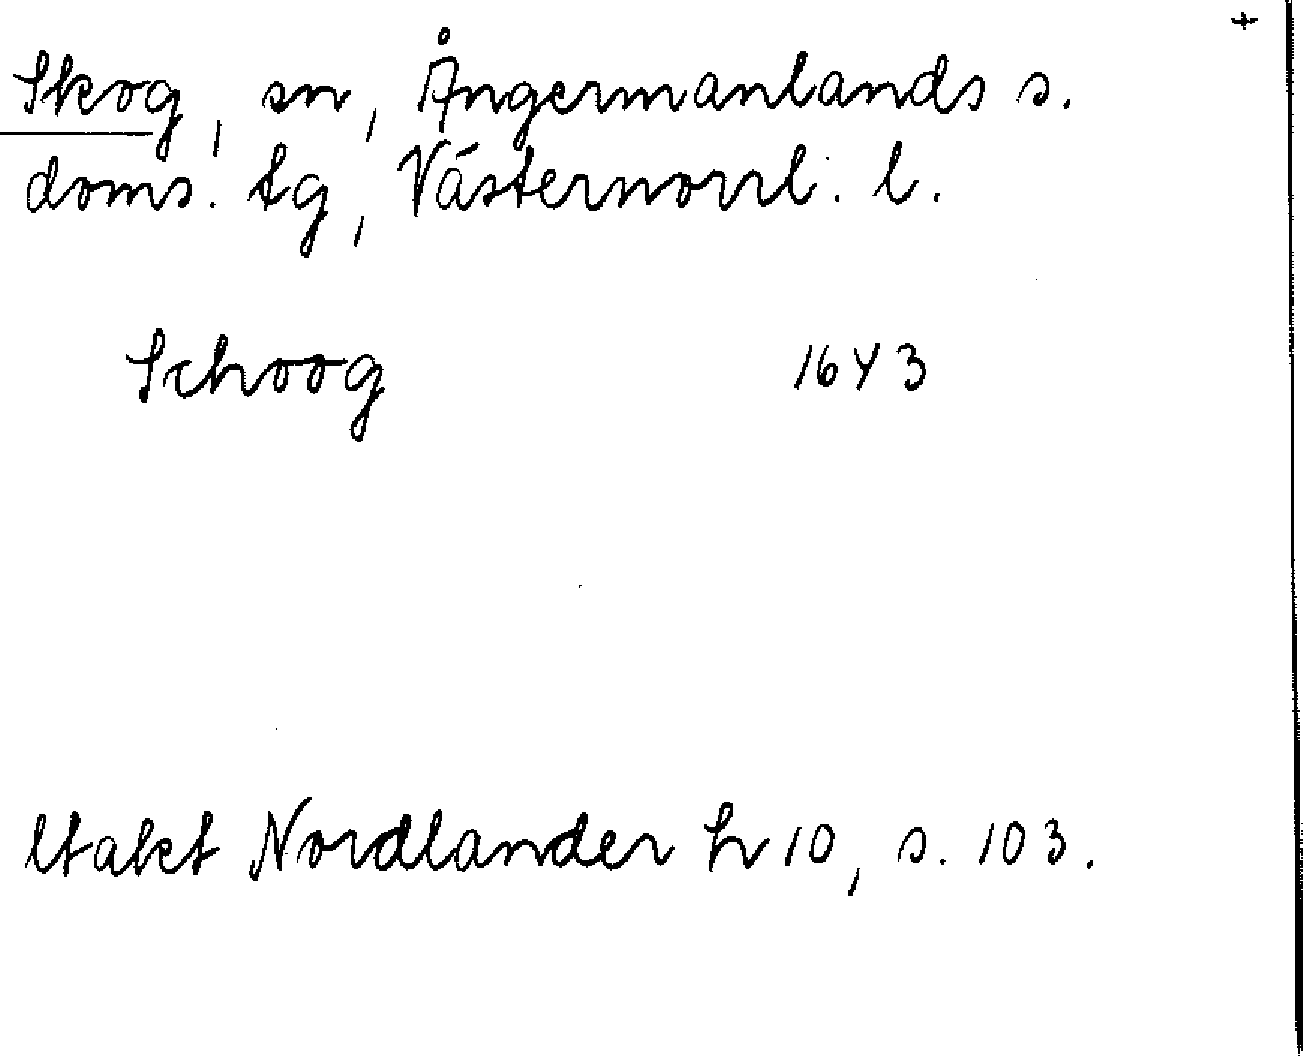 +
Skog, sn, Ångermanlands s.
doms. tg, Västernorrl. l.
Schoog 1643
Utakt Nordlander h 10, s. 103.